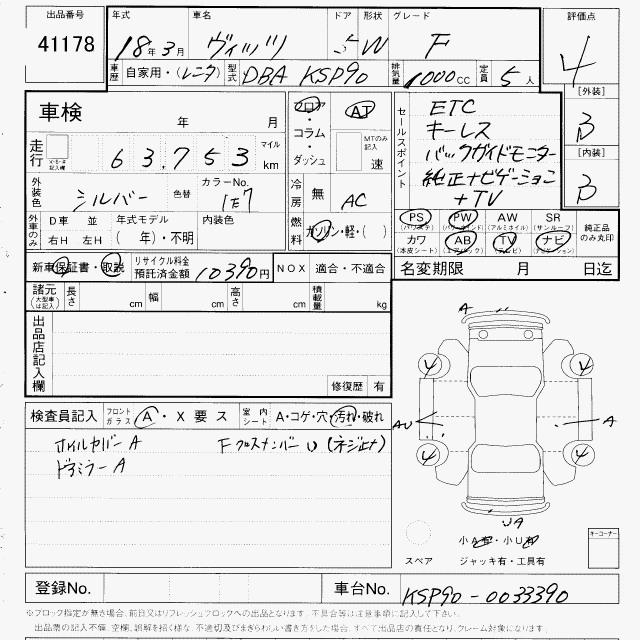 出品番号 年式 車名 ドア 形状 グレード 評価点
41178 18年 3月 ヴィッツ 5 W F 4
車歴 自家用・(レンタ) 型式 DBA KSP90 排気量 1000cc 定員 5人
[外装]
B
[内装]
B
車検 年 月
走行 63,753 マイル km
外装色 シルバー 色替 カラーNo. 1E7
外車のみ D車 並 年式モデル 内装色
右H 左H ( 年)・不明
フロア・コラム・ダッシュ AT
MTのみ記入 速
冷房 無 AC
燃料 ガソリン・軽・( )
セールスポイント
ETC
キーレス
バックガイドモニター
純正ナビゲーション
+TV
PS PW AW SR 純正品のみ丸印
(パワステ) (パワーウインド) (アルミホイル) (サンルーフ)
カワ AB TV ナビ
(本皮シート) (エアバック) (テレビ) (ナビゲーション)
新車保証書・取説 リサイクル料金預託済金額 10390円 NOX 適合・不適合
名変期限 月 日迄
諸元 (大型車は記入) 長さ cm 幅 cm 高さ cm 積載量 kg
出品店記入欄
修復歴 有
検査員記入 フロントガラス A・X要ス 室内シート A・コゲ・穴・汚れ・破れ
ホイルカバーA FクロスメンバーU (ネジ止ナ)
ドアミラーA
A
4 4
AU A
4 4
UA
小A有・小U有
スペア ジャッキ有・工具有
キーコーナー
登録No. 車台No. KSP90-0033390
※ブロック指定が無き場合、前日又はリフレッシュブロックへの出品となります。不具合等は注意事項に記入して下さい。
出品票の記入不備、空欄、誤解を招く様な、不適切及びまぎらわしい書き方をした場合、すべて出品店の責任となり、クレーム対象になります。